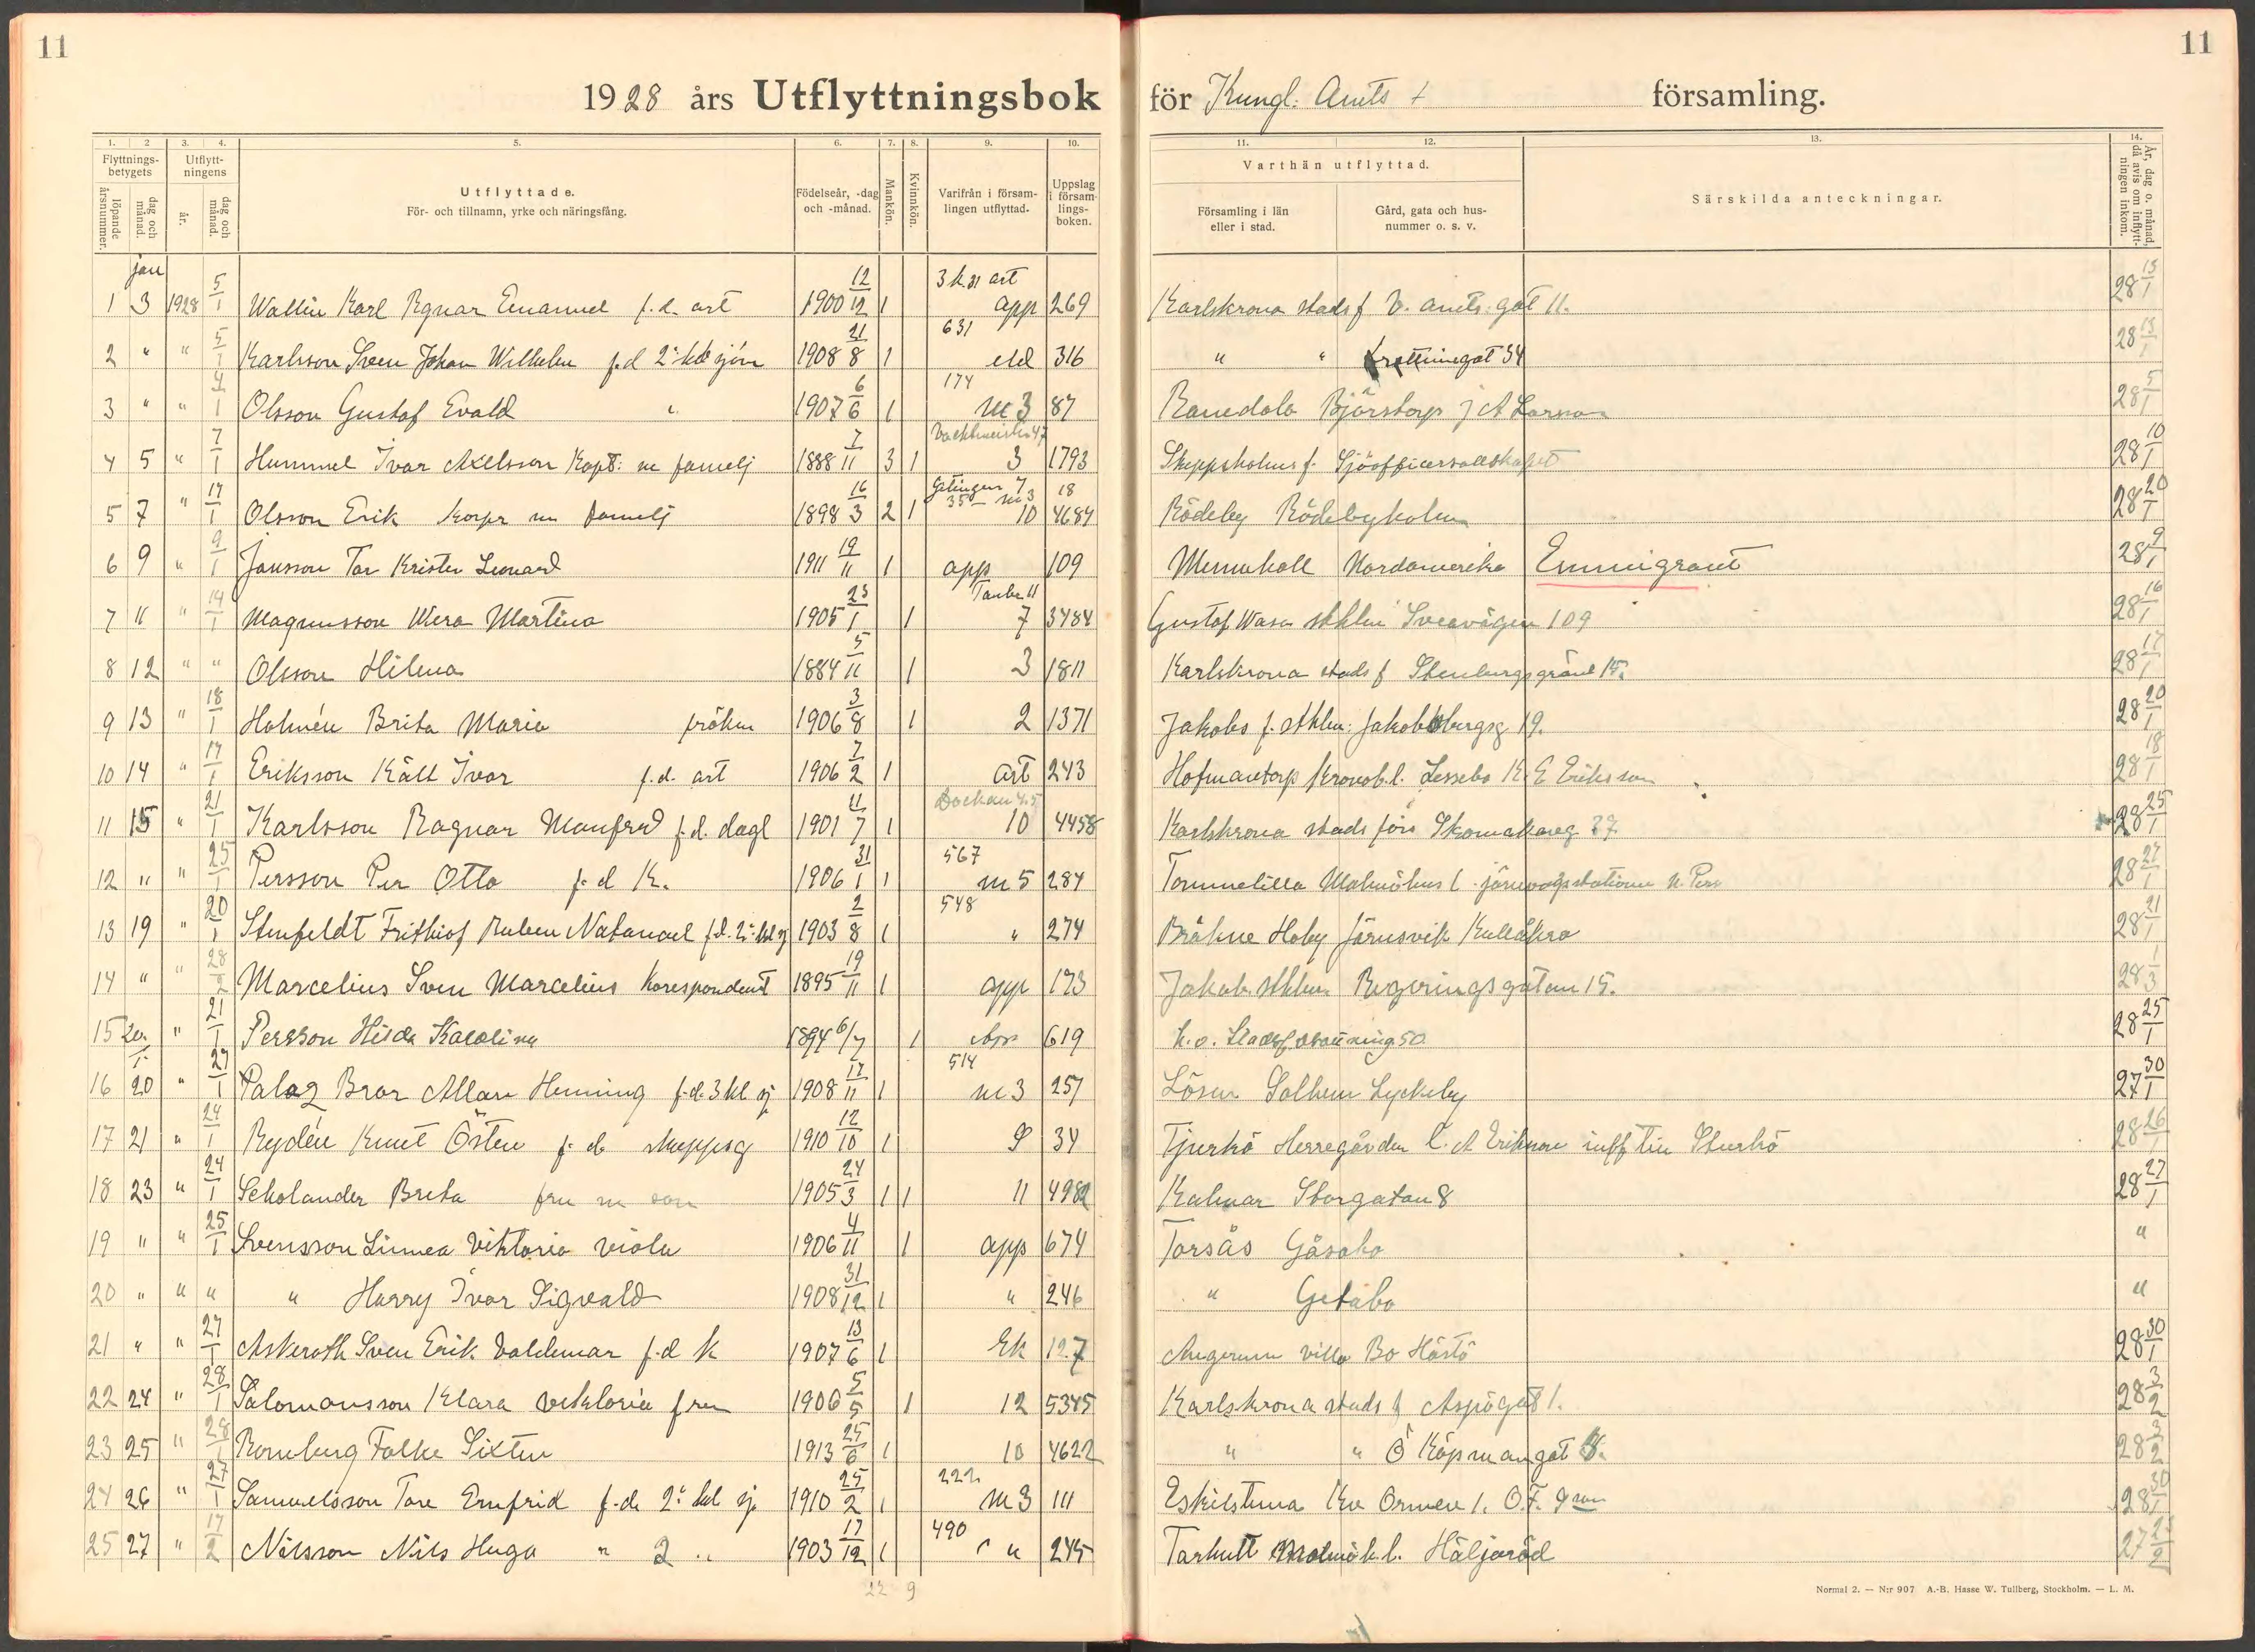 11
11
1928 års Utflyttningsbok för Kungl. Amts + församling.
1. 2 3. 4. 5. 6. 7. 8. 9. 10. 11. 12. 13. 14.
Flyttnings-betygets
Utflytt-ningens
löpande årsnummer.
dag och månad.
år.
dag och månad.
Utflyttade.
För- och tillnamn, yrke och näringsfång.
Födelseår, -dag och -månad.
Mankön.
Kvinnkön.
Varifrån i försam-lingen utflyttad.
Uppslag i försam-lings-boken.
Varthän utflyttad.
Församling i län eller i stad.
Gård, gata och hus-nummer o. s. v.
Särskilda anteckningar.
År, dag o. månad, då avis om inflytt-ningen inkom.
1 jan 3 1928 5/1 Wallin Karl Ragnar Emanuel f.d. art 1900 12/12 1 3 k. art app 269 Karlskrona stadsf V. amts.gat 11. 28 13/1
2 " " 5/1 Karlsson Sven Johan Wilhelm f.d 2 kl sjöm 1908 21/8 1 631 eld 316 " " Drottninggat 34 28 13/1
3 " " 4/1 Olsson Gustaf Evald " 1907 6/6 1 174 m 3 87 Björstorp J A Larsson 28 5/1
4 5 " 7/1 Hummel Ivar Axelsson Kapt: m familj 1888 7/11 3 1 Vachtmeister 47 3 1793 Skeppsholms f. Sjöofficerssällskapet 28 10/1
5 7 " 17/1 Olsson Erik Korpr m familj 1898 16/3 2 1 Getingen 7 35 m 3 18 10 4684 Rödeby Rödebyholm 28 20/1
6 9 " 9/1 Jansson Tor Krister Leonard 1911 19/11 1 app 109 Nordamerika Emmigrant 28 9/1
7 11 " 14/1 Magnusson Wera Martina 1905 23/1 1 7 3484 Gustaf Wasa sthlm Sveavägen 109 28 16/1
8 12 " " Olsson Hilma 1884 5/11 1 3 1811 Karlskrona stads f Stenbergsgränd 15. 28 17/1
9 13 " 18/1 Holmén Brita Maria fröken 1906 3/8 1 2 1371 Jakobs f. sthlm: Jakobsbergsg 19. 28 20/1
10 14 " 17/1 Eriksson Käll Ivar f.d. art 1906 7/2 1 art 243 Hofmantorp Kronob.l. Lessebo K. E Eriksson 28 18/1
11 15 " 21/1 Karlsson Ragnar Manfred f.d. dagl 1901 11/7 1 Dockan 4.5 10 4458 Karlskrona stads förs Skomakareg 27 28 25/1
12 " " 25/1 Persson Per Otto f d K. 1906 31/1 1 567 m 5 284 Tommelilla Malmöhus l. järnvägsstationen 28 27/1
13 19 " 20/1 Stenfeldt Frithiof Ruben Natanael f.d. 2 kl sj 1903 2/8 1 548 " 274 Bräkne Hoby Järnavik Kullåkra 28 21/1
14 " " 28/2 Marcelius Sven Marcelius Korespondent 1895 19/11 1 app 173 Jakob sthlm Regeringsgatan 15. 28 1/3
15 20/1 " 21/1 Persson Hilda Karolina 1894 6/7 1 App 619 K.a. Stadsf. Drottning 50 28 25/1
16 20 " 27/1 Palag Bror Allan Henning f.d. 3 kl sj 1908 17/11 1 514 m 3 257 Lösen Solhem Lyckeby 27 30/1
17 21 " 24/1 Rydén Knut Östen f d skeppsg 1910 12/10 1 S 34 Tjurkö Herregården C. A Eriksson Sturkö 28 26/1
18 23 " 24/1 Scholander Brita fru m son 1905 24/3 1 1 11 4982 Kalmar Storgatan 8 28 27/1
19 " " 25/1 Svensson Linnea Viktoria Viola 1906 4/11 1 app 674 Torsås Gåsabo "
20 " " " " Harry Ivar Sigvald 1908 31/12 1 " 246 " Getabo "
21 " " 27/1 Askeroth Sven Erik Valdemar f.d k 1907 13/6 1 Ek 127 Augerum villa Bo Hästö 28 30/1
22 24 " 28/1 Salomonsson Klara Viktoria fru 1906 5/5 1 12 5345 Karlskrona stads f Aspögat 1. 28 3/2
23 25 " 28/1 Ronneberg Folke Sixten 1913 25/6 1 10 4622 " " Ö Köpmangat 8. 28 3/2
24 26 " 27/1 Samuelsson Tore Ernfrid f.d. 2 kl sj 1910 25/2 1 222 m 3 111 Eskilstuna Kv Ormen 1. 28 30/1
25 27 " 17/2 Nilsson Nils Hugo " 2 " 1903 17/12 1 490 " " 245 Malmöh.l. Häljaröd 27
22 9
Normal 2. — N:r 907 A.-B. Hasse W. Tullberg, Stockholm. — L. M.